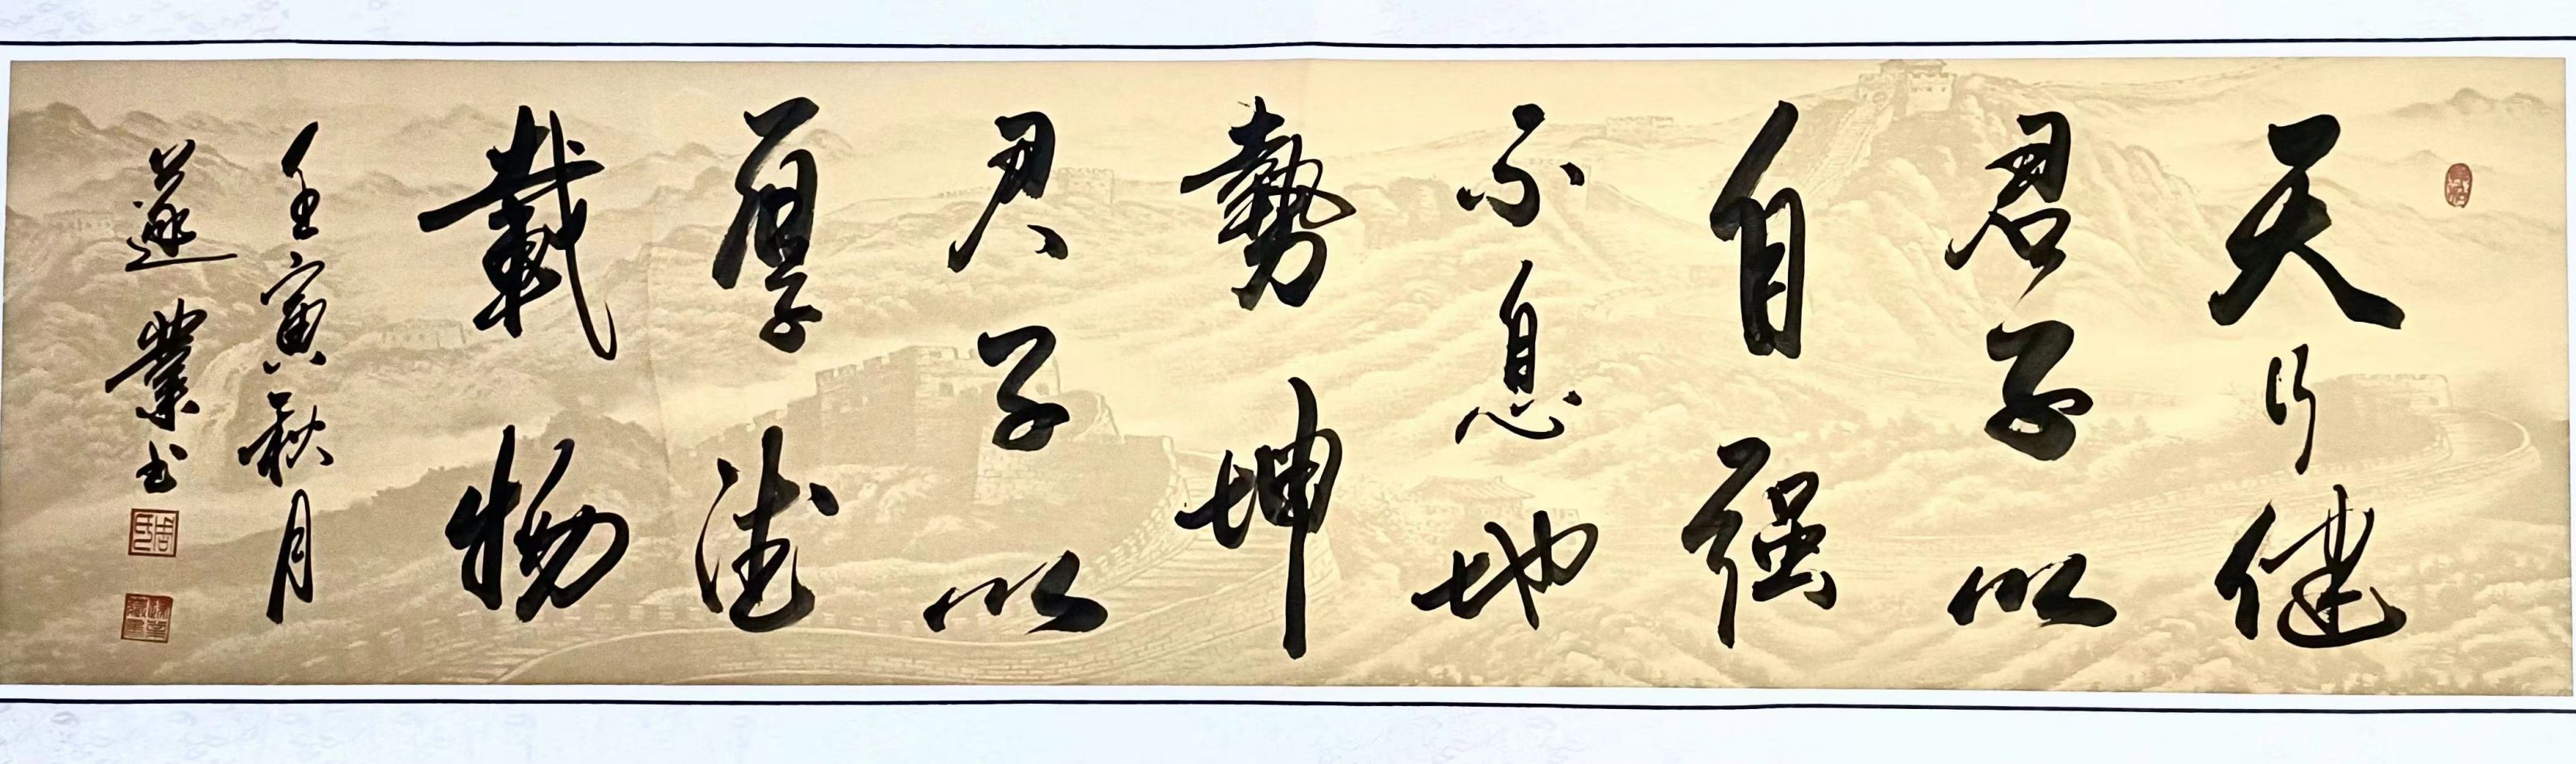 天行健
君子以
自强
不息地
勢坤
君子以
厚德
載物
壬寅秋月
遂業书
周氏